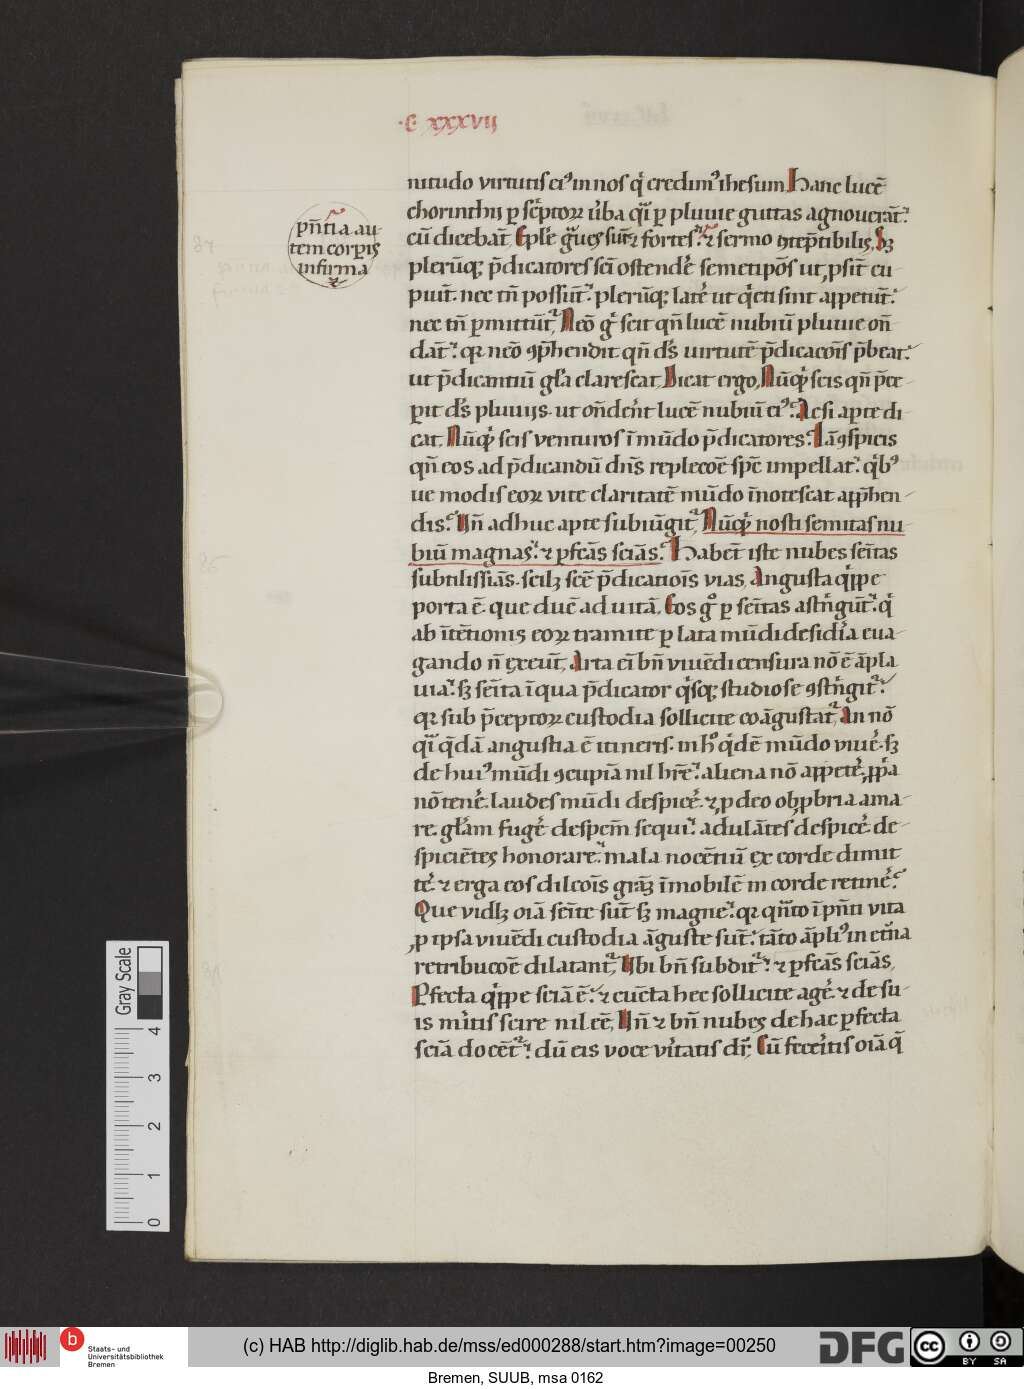 ·C· xxxvij
nitudo virtutis ei᷒ in nos q̇ credim᷒ ihesum, Hanc lucē
chorinthii ꝑ sc̄ptoꝝ v̄ba q̄i ꝑ pluuie guttas agnouerāt.
cū dicebāt, Eple g̈ues sūt ⁊ fortes. ⁊ sermo ꝯtēptibilis, Sꝫ
pn̄tia au-
tem corꝑis
infirma
plerūqꝫ p̄dicatores sc̄i ostendē semetip̄os ut ꝓsīt cu
piūt. nec tn̄ possūt. plerūqꝫ latē ut q̇eti sint appetūt.
nec tn̄ ꝑmittūt, Neō g̊ scit qn̄ lucē nubiū pluuie on̄
dāt. qꝛ neō ꝯp̄hendit qn̄ ds̄ uirtutē p̄dicacōis p̄beat.
ut p̄dicantiū gl̄a clarescat, Dicat ergo, Nūqͥd scis qn̄ p̄ce
ꝑit ds̄ pluuijs. ut on̄dent lucē nubiū ei᷒. Ac si aperte di
cat. Nūqͥd scis venturos ī mūdo p̄dicatores. Iā ꝯspicis
qn̄ eos ad p̄dicandū dn̄s replecōe sp̄c impellat. qͥb᷒
ue modis eoꝝ vite claritatē mūdo īnotescat appħen-
dis. Un̄ adhuc apte subiūgit, Nūqͥd nosti semitas nu
biū magnas. ⁊ ꝑfcās sciās. Habēt iste nubes sem̄tas
subtilissīas. scilꝫ scē p̄dicatiōis vias, Angusta qͥppe
porta ē. que ducē ad uitā, Eos g̊ ꝑ sem̄tas astn̄gūt. qͥ
ab ītētionis eoꝝ tramite ꝑ lata mūdi desidīa eua
gando n̄ exeūt, Arta ei̅ bn̄ viuēdi censura nō ē āpla
uia. sꝫ semīta ī qua p̄dicator qͥsqꝫ studiose ꝯstn̄git.
qꝛ sub p̄ceptoꝝ custodia sollicite coāgustat, An nō
q̄i q̄dā angustia ē itineris. in h̊ qͥdē mūdo viuē. sꝫ
de hui᷒ mūdi ꝯcupīa nil hr̄e. aliena nō appetē. ꝓp̄a
nō tenē. laudes mūdi despicē. ⁊ ꝓ deo obꝓbria ama
re. gl̄am fugē. despcm̄ sequi. adulātes despicē. de-
spiciētes honorare. mala nocētiū ex corde dimit
tē. ⁊ erga eos dilcōis grāꝫ īmobilē in corde retinē.
Que vidꝫ oīa semīte sūt sꝫ magne. qꝛ qn̄to ī pn̄ti vita
ꝓ ipsa viuēdi custodia āguste sūt. tāto āpli᷒ in et̄na
retribucōe dilatant, Ubi bn̄ subdit. ⁊ ꝑfcās sciās,
Pfecta qͥppe sciā ē. ⁊ cūcta hec sollicite agē. ⁊ de su-
is mītis scire nil eē, Un̄ ⁊ bn̄ nubes de hac ꝑfecta
sciā docēt. dū eis voce vītatis dr̄. Cū fecītis oīa q̄
Gray Scale
4 3 2 1 0
b Staats- und
Universitätsbibliothek
Bremen
(c) HAB http://diglib.hab.de/mss/ed000288/start.htm?image=00250
DFG
cc BY SA
Bremen, SUUB, msa 0162